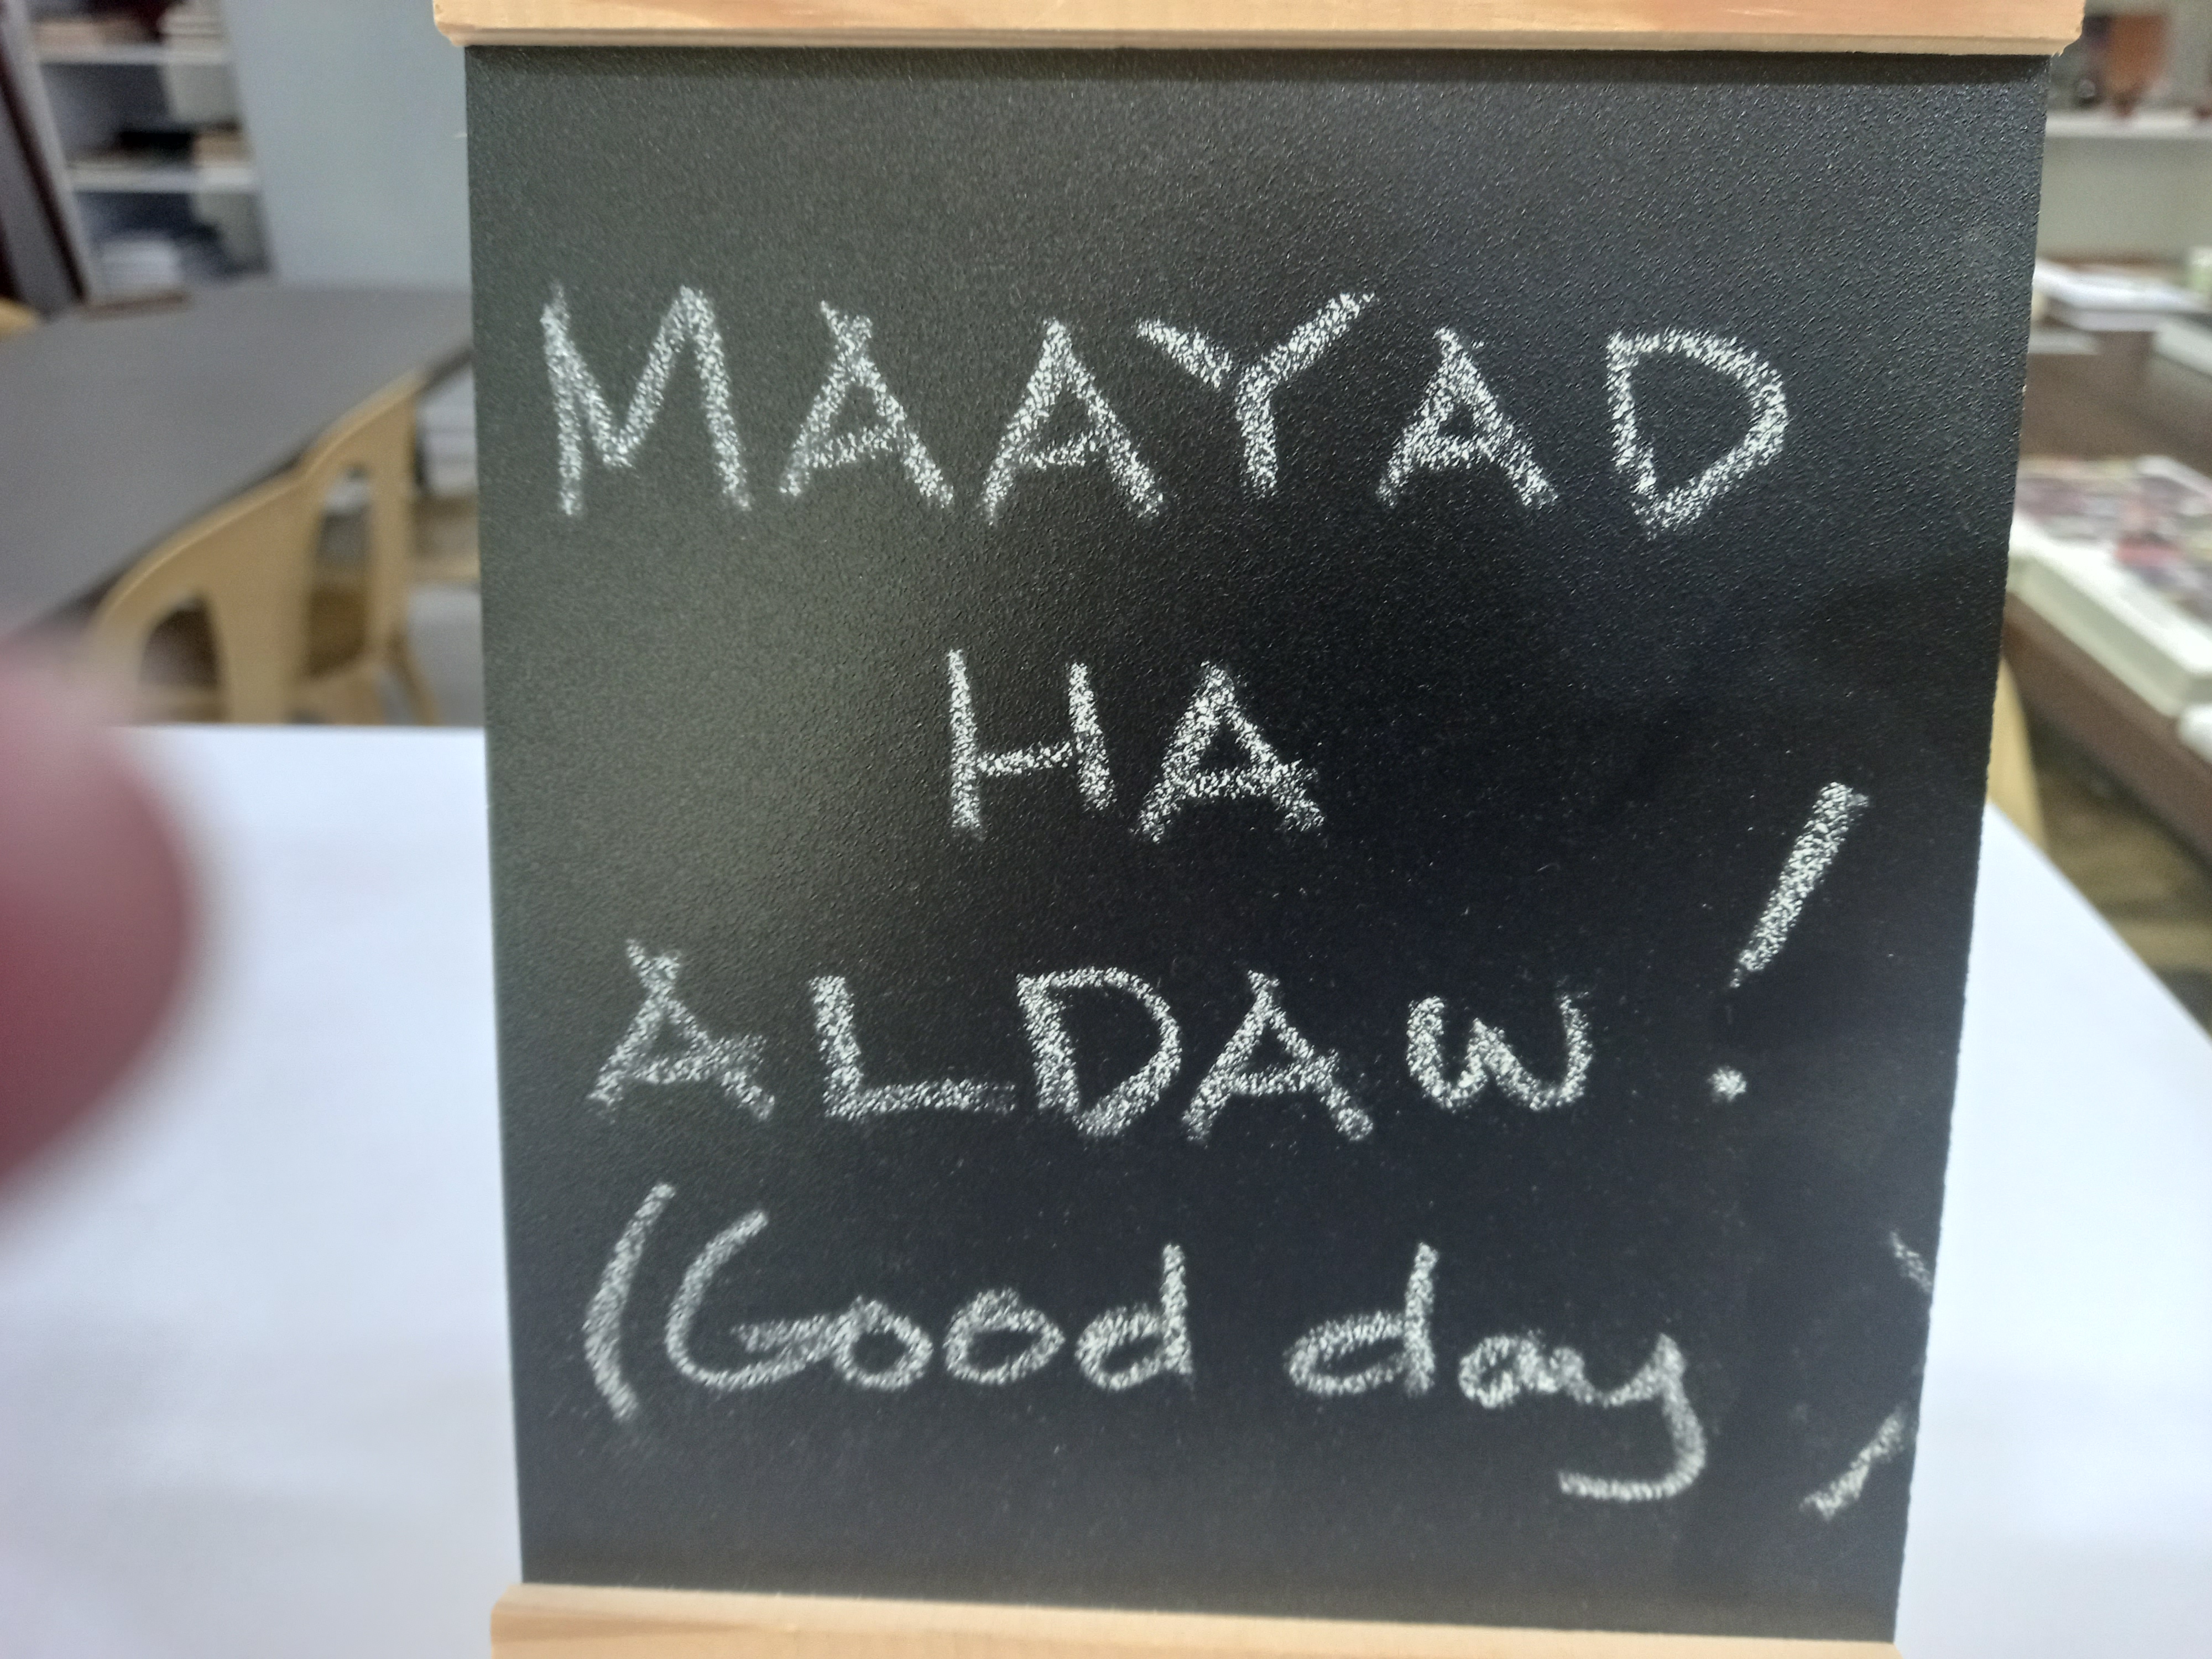 MAAYAD
HA
ALDAW!
(Good day)